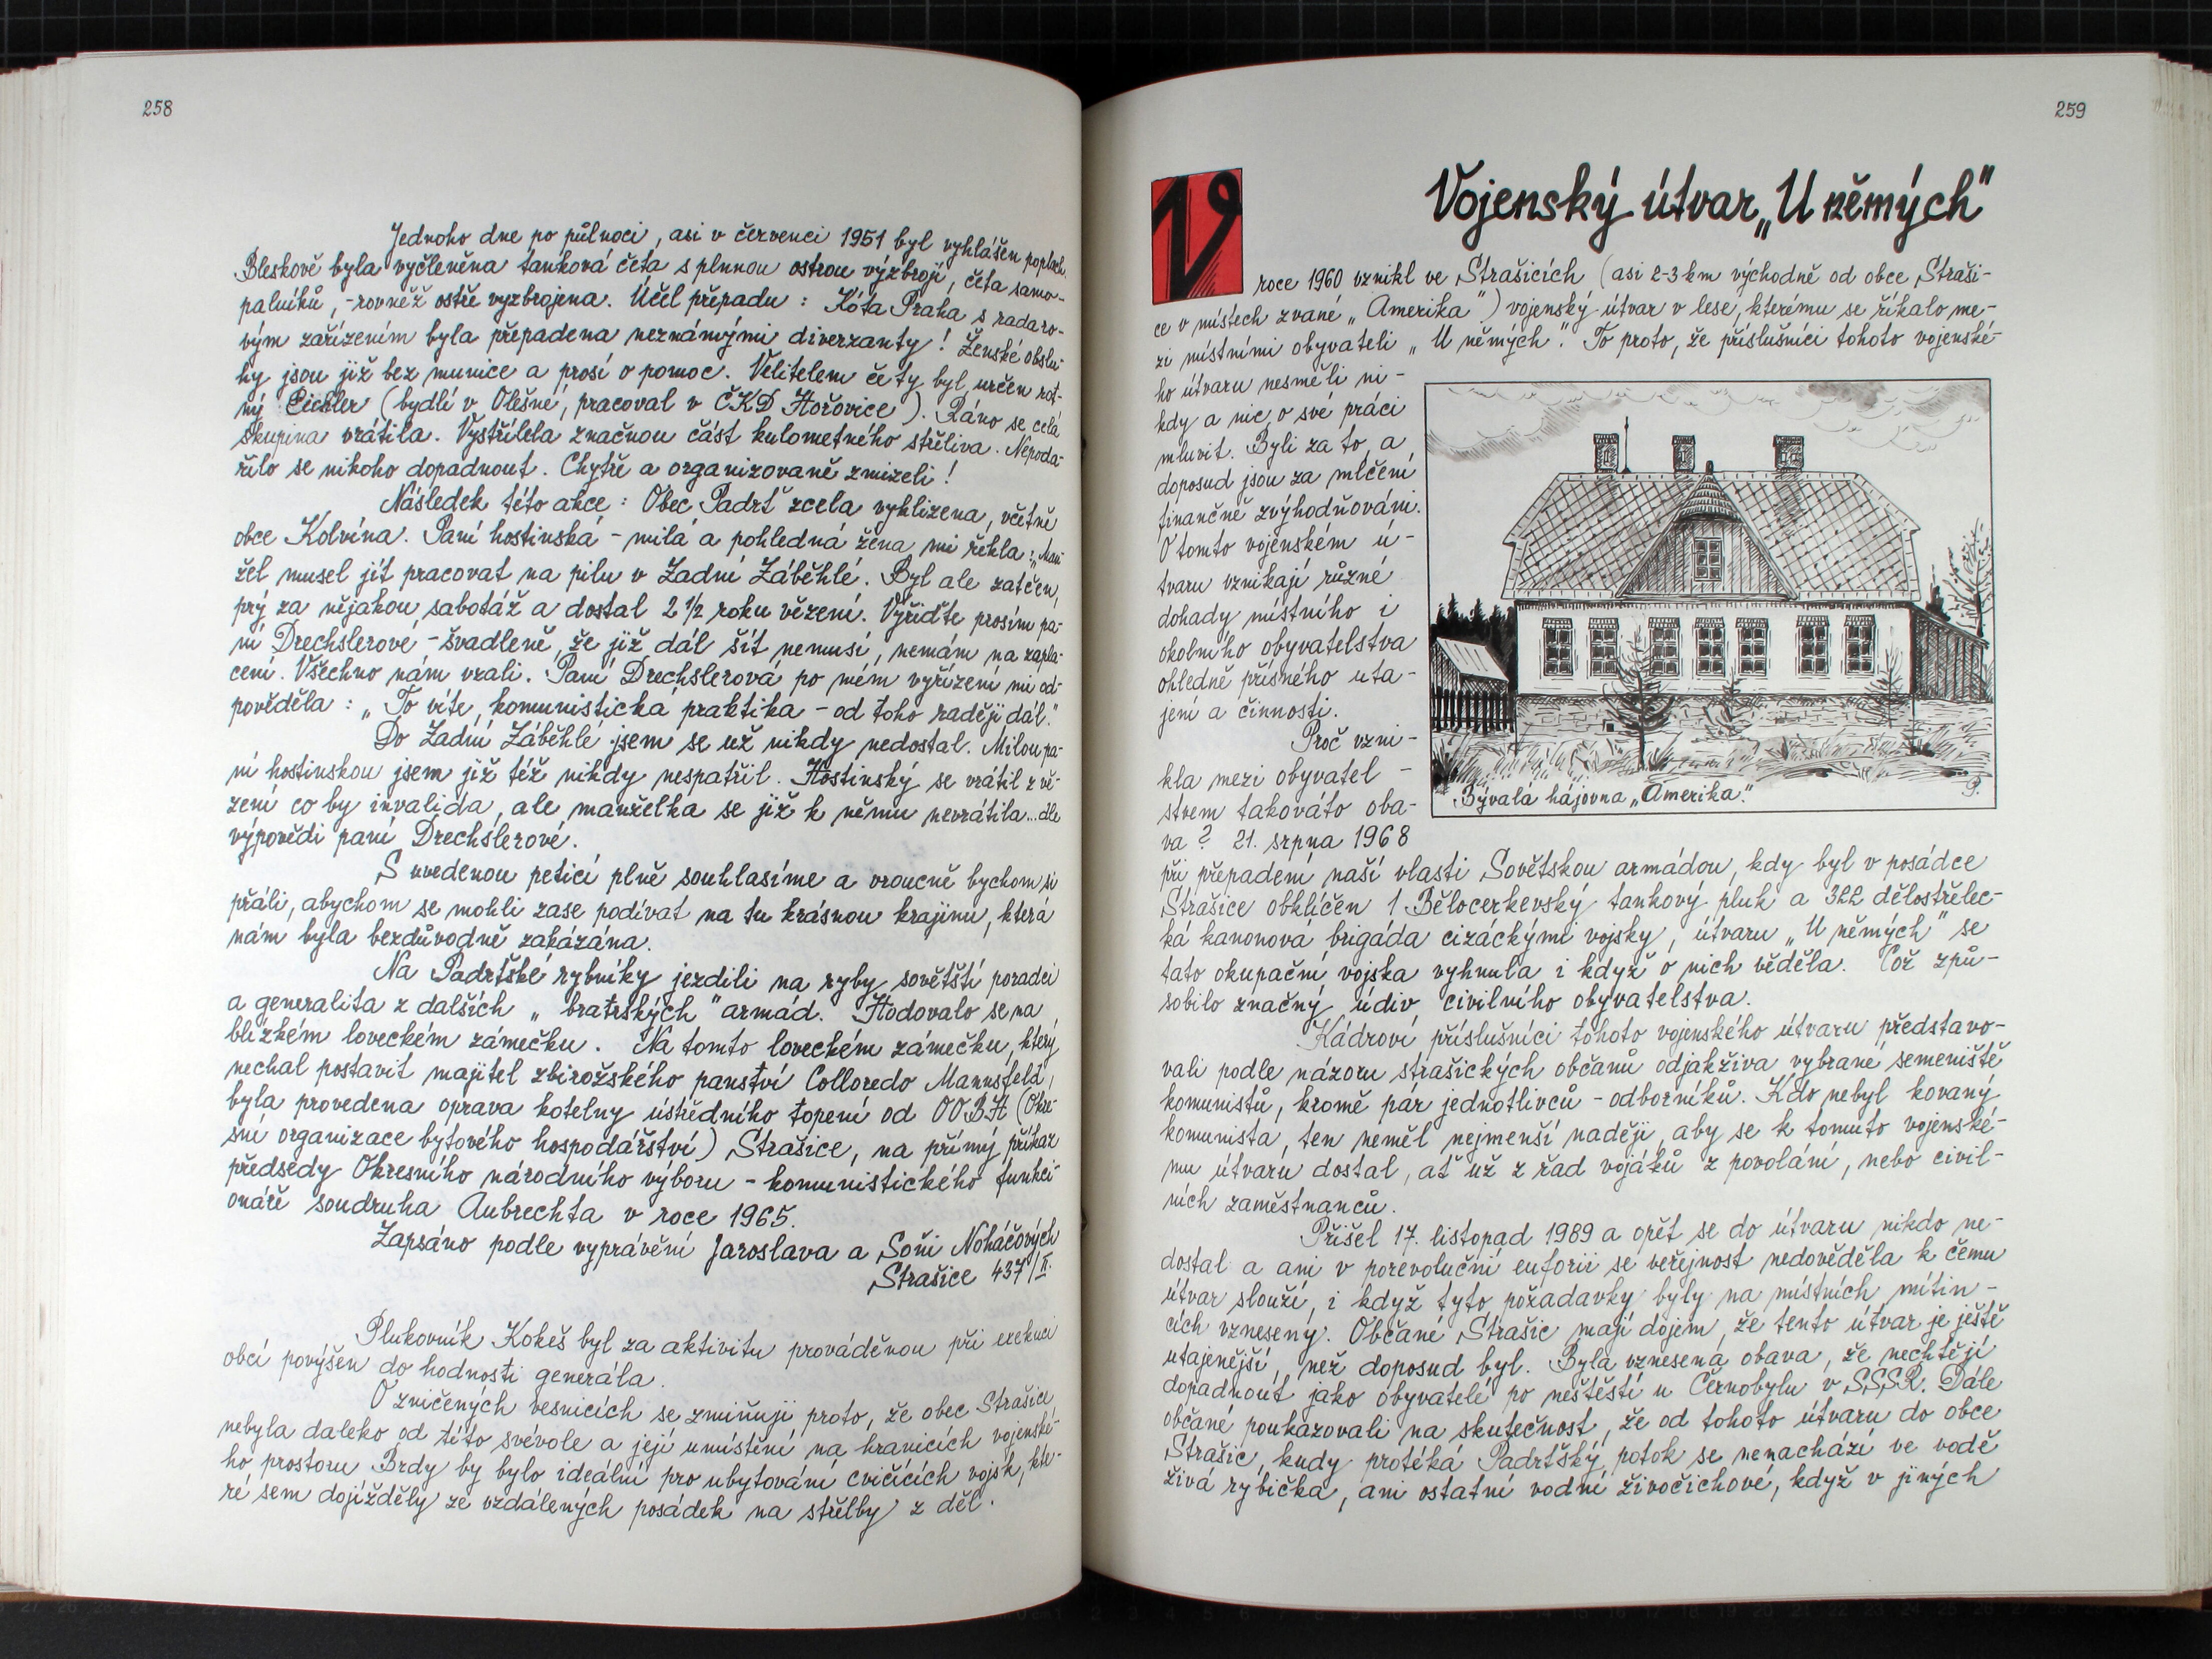 258
Jednoho dne po půlnoci, asi v červenci 1951 byl vyhlášen poplach.
Bleskově byla vyčleněna tanková četa s plnnou ostrou výzbrojí, četa samo-
palníků, - rovněž ostře vyzbrojena. Účel přepadu : Kóta Praha s radaro-
vým zařízením byla přepadena neznámými diverzanty! Ženské obslu-
hy jsou již bez munice a prosí o pomoc. Velitelem čety byl určen rot-
ný Eichler (bydlí v Olešné, pracoval v ČKD Hořovice). Ráno se celá
skupina vrátila. Vystřílela značnou část kulometného střeliva. Nepoda-
řilo se nikoho dopadnout. Chytře a organizovaně zmizeli!
Následek této akce : Obec Padrť zcela vyklizena, včetně
obce Kolvína. Paní hostinská - milá a pohledná žena mi řekla: „Man-
žel musel jít pracovat na pilu v Zadní Záběhlé. Byl ale zatčen,
prý za nějakou sabotáž a dostal 2 1/2 roku vězení. Vyřiďte prosím pa-
ní Drechslerové - švadleně, že již dál šít nemusí, nemám na zapla-
cení. Všechno nám vzali. Paní Drechslerová po mém vyřízení mi od-
pověděla : „To víte, komunistická praktika - od toho raději dál."
Do Zadní Záběhlé jsem se už nikdy nedostal. Milou pa-
ní hostinskou jsem již též nikdy nespatřil. Hostinský se vrátil z vě-
zení co by invalida, ale manželka se již k němu nevrátila...dle
výpovědi paní Drechslerové.
S uvedenou peticí plně souhlasíme a vroucně bychom si
přáli, abychom se mohli zase podívat na tu krásnou krajinu, která
nám byla bezdůvodně zakázána.
Na Padrťské rybníky jezdili na ryby sovětští poradci
a generalita z dalších „bratrských" armád. Hodovalo se na
blízkém loveckém zámečku. Na tomto loveckém zámečku, který
nechal postavit majitel zbirožského panství Colloredo Mannsfeld,
byla provedena oprava kotelny ústředního topení od OOBH (Okre-
sní organizace bytového hospodářství) Strašice, na přímý příkaz
předsedy Okresního národního výboru - komunistického funkci-
onáře soudruha Aubrechta v roce 1965.
Zapsáno podle vyprávění Jaroslava a Soňi Noháčových
Strašice 437/II.
Plukovník Kokeš byl za aktivitu prováděnou při exekuci
obcí povýšen do hodnosti generála.
O zničených vesnicích se zmiňuji proto, že obec Strašice
nebyla daleko od této svévole a její umístění na hranicích vojenské-
ho prostoru Brdy by bylo ideální pro ubytování cvičících vojsk, kte-
ré sem dojížděly ze vzdálených posádek na střelby z děl.
259
Vojenský útvar „U němých"
V roce 1960 vznikl ve Strašicích (asi 2-3 km východně od obce Straši-
ce v místech zvané „Amerika") vojenský útvar v lese, kterému se říkalo me-
zi místními obyvateli „U němých". To proto, že příslušníci tohoto vojenské-
ho útvaru nesměli ni-
kdy a nic o své práci
mluvit. Byli za to, a
doposud jsou za mlčení
finančně zvýhodňováni.
O tomto vojenském ú-
tvaru vznikají různé
dohady místního i
okolního obyvatelstva
ohledně přísného uta-
jení a činnosti.
Proč vzni-
kla mezi obyvatel-
stvem takováto oba-
va ? 21. srpna 1968
Bývalá hájovna „Amerika".
P.
při přepadení naší vlasti Sovětskou armádou, kdy byl v posádce
Strašice obklíčen 1 Bělocerkevský tankový pluk a 322 dělostřelec-
ká kanonová brigáda cizáckými vojsky, útvaru „U němých" se
tato okupační vojska vyhnula i když o nich věděla. Což způ-
sobilo značný údiv civilního obyvatelstva.
Kádroví příslušníci tohoto vojenského útvaru představo-
vali podle názoru strašických občanů odjakživa vybrané semeniště
komunistů, kromě pár jednotlivců - odborníků. Kdo nebyl kovaný
komunista, ten neměl nejmenší naději, aby se k tomuto vojenské-
mu útvaru dostal, ať už z řad vojáků z povolání, nebo civil-
ních zaměstnanců.
Přišel 17. listopad 1989 a opět se do útvaru nikdo ne-
dostal a ani v porevoluční euforii se veřejnost nedověděla k čemu
útvar slouží, i když tyto požadavky byly na místních mítin-
cích vzneseny. Občané Strašic mají dojem, že tento útvar je ještě
utajenější, než doposud byl. Byla vznesená obava, že nechtějí
dopadnout jako obyvatelé po neštěstí u Černobylu v SSSR. Dále
občané poukazovali na skutečnost, že od tohoto útvaru do obce
Strašic, kudy protéká Padrťský potok se nenachází ve vodě
živá rybička, ani ostatní vodní živočichové, když v jiných